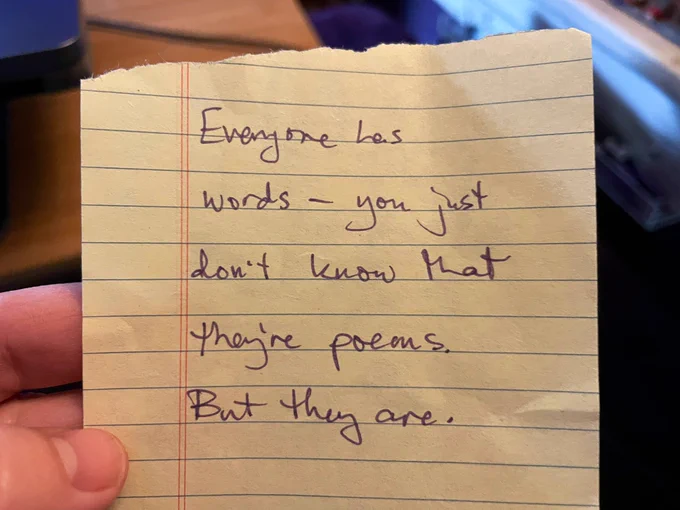 Everyone has
words – you just
don't know that
they're poems.
But they are.